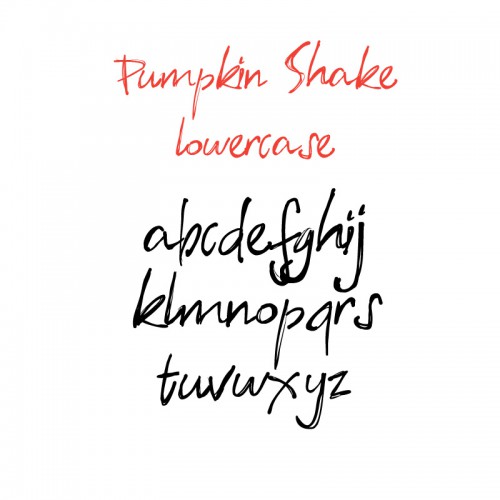 Pumpkin Shake
lowercase
abcdefghij
klmnopqrs
tuvwxyz